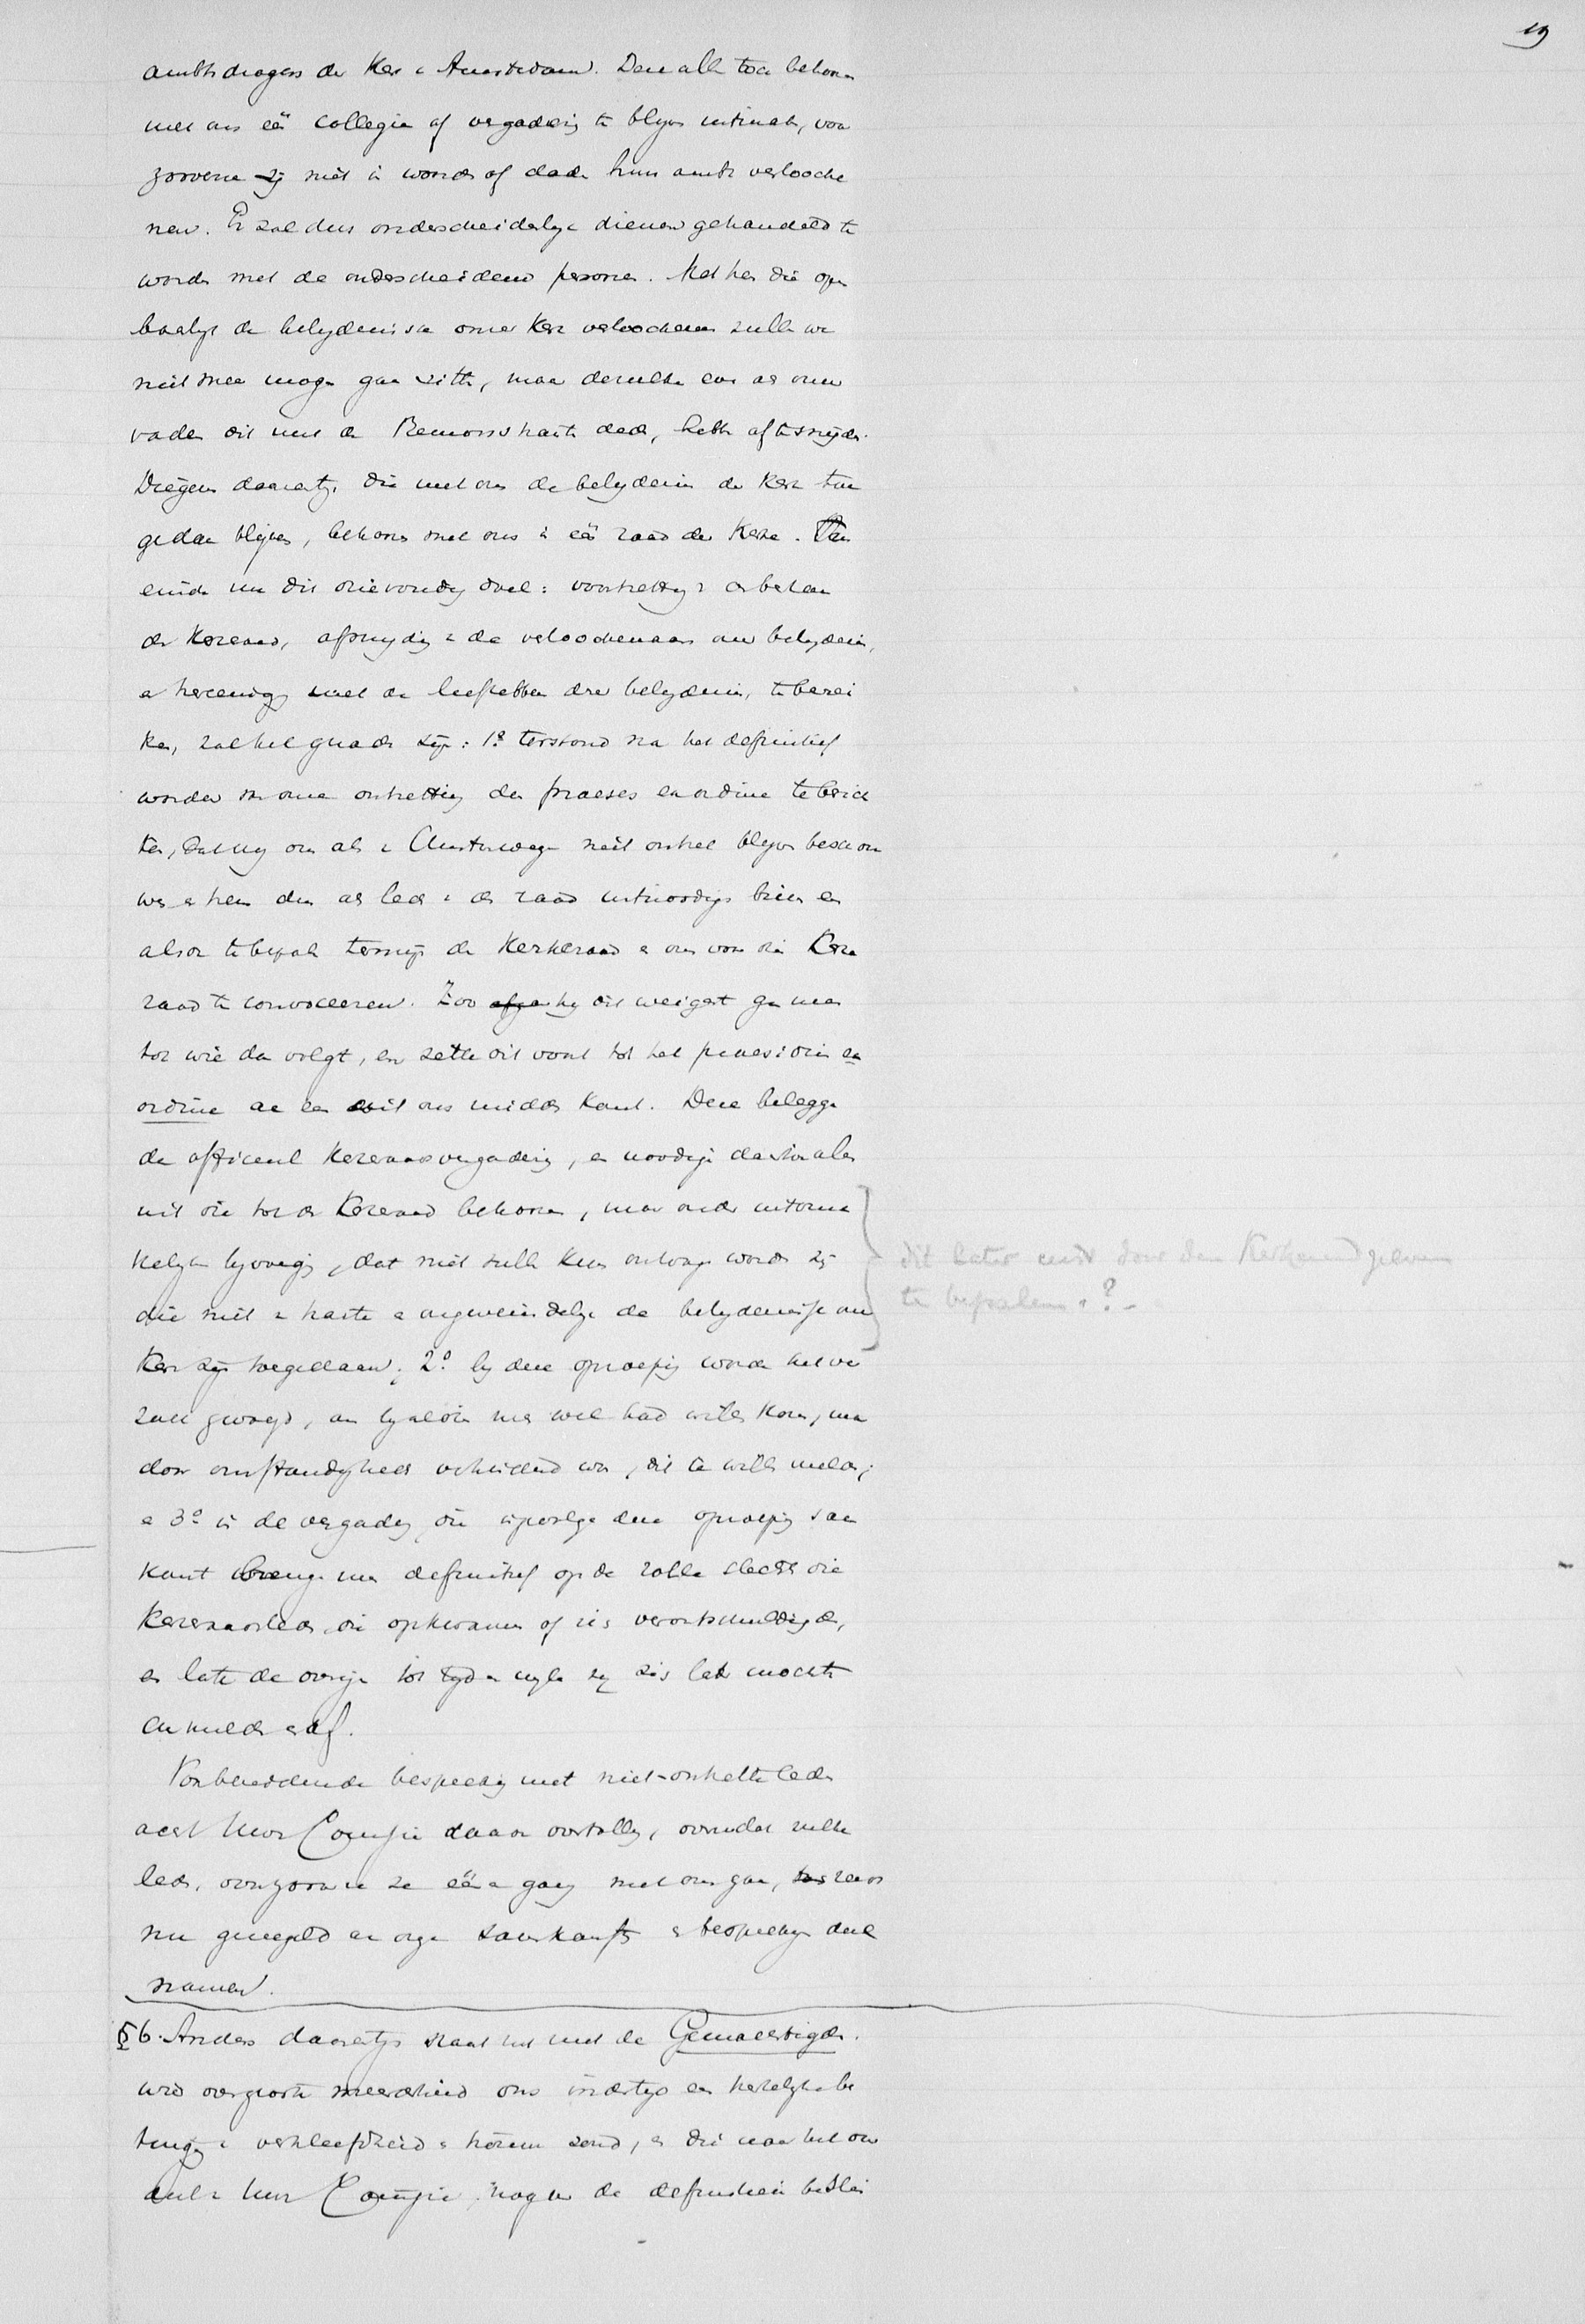 19
ambtsdragers der Kerk Amsterdam. Deze allen toch behooren
met ons één Collegie of vergadering te blijven uitmaken, voor
zooverre zij niet in woorden of daden hun ambt verlooche
nen. Er zal dus onderscheidenlijk dienen gehandeld te
worden met de onderscheidene personen. Met hen die open
baarlijk de belydenis van onze Kerk verloochenen zullen we
niet meer mogen gaan zitten, maar dezulken even als onze
vaderen dit met de Remonstranten deden, hebben af te snijden.
Diegenen daarentegen die met ons de belydenis der Kerk toe
gedaan blijven, behooren met ons in één raad der Kerke. Ten
einde nu dit drievoudig doel: voortzetting behoren
der Kerkeraad, afsnyding de verloochenaars onzer belydenis,
en hereeniging met de liefhebbers dier belydenis, te berei
ken, zal het goed zijn: 1º terstond na het definitief
worden van onze ontzetting den praeses en ordine te berich
ten, dat wy ons als Amtswege niet ontzet blyven beschou
wen en hem dus als leden der raad uitnoodigen binnen een
alsoo te bepalen termijn de Kerkeraad en ons voor die Kerke
raad te convoceeren. Zoo hij dit weigert ga men
tot wie dan volgt, en zette dit voort tot het praesidium ex
ordine aan een uit ons midden komt. Deze belegge
de officieel Kerkeraadsvergadering, en noodige daartoe allen
uit die tot de Kerkeraad behooren, maar onder uitdruk
kelyke byvoeging, dat niet zullen kunnen ontvangen worden zij
die niet van harte en ongeveinsdelyk de belydenisse onzer
Kerk zijn toegedaan; 2º by deze oproeping worde het ver
zoek gevoegd, om byaldien men wel had willen komen, maar
door omstandigheden verhinderd was, dit te willen melden;
en 3º in de vergadering, die ingevolge deze oproeping saam
komt brenge men definitief op de rolle slechts die
Kerkeraadsleden, die opkwamen of zich verontschuldigden,
en late de overige tot tyd en wyle zy zich later mochten
aanmelden eraf.
Voorbereidende bespreking met niet-ontzette leden
acht Uwe Comissie daarom overtollig, overmits zulke
leden, overzoover ze één gang met ons gaan, reeds
nu geregeld aan onze saamkomsten en besprekingen deel
namen.
§ 6. Anders daarentegen staat het met de Gemachtigden.
wier overgroote meerderheid ons indertijd een hartelyke be
tuiging verkleefdheid toezond, en die naar het oor
deel Uwer Comissie, nog de definitieve beslis
dit later eerst door den Kerkeraad zelven
te bepalen?